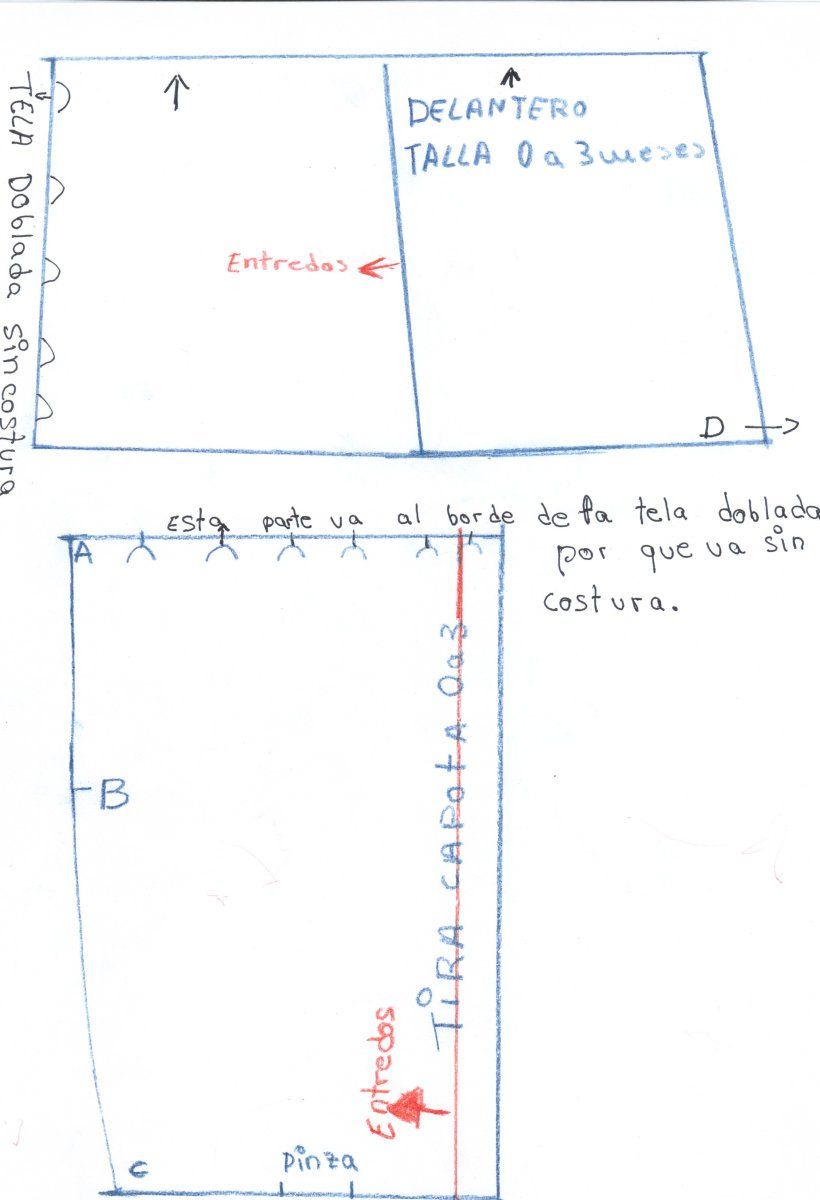 TELA Doblada sin costura
DELANTERO
TALLA 0 a 3 meses
Entredos
D
Esta parte va al borde de la tela doblada
por que va sin
costura.
A
B
TIRA CAPOTA 0a3
Entredos
C
Pinza